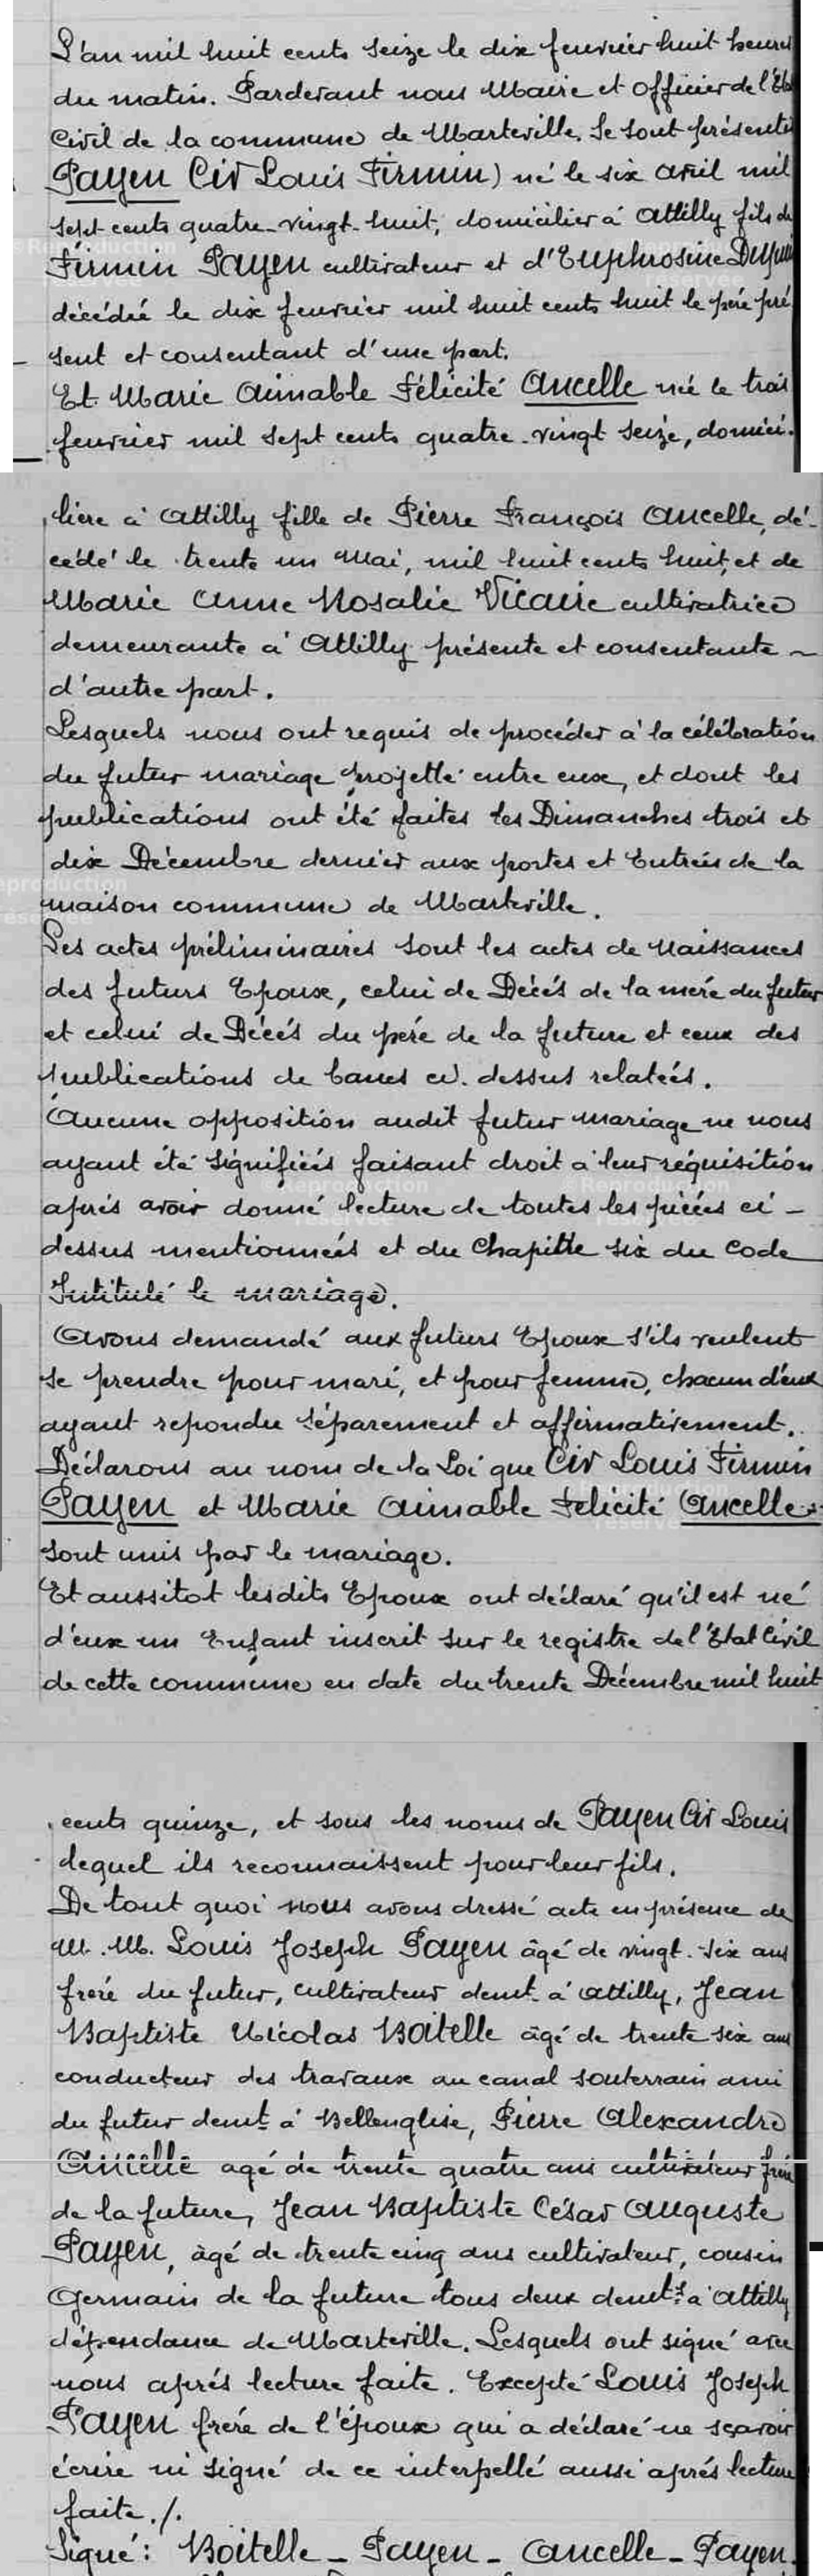 L'an mil huit cents seize le dix fevrier huit heures
du matin. Pardevant nous Maire et officier de l'Etat
Civil de la commune de Marteville. Se sont présentés
Payen Cir Louis Firmin) né le six avril mil
sept cents quatre-vingt-huit, domicilier à Attilly fils de
Firmin Payen cultivateur et d'Euphrosine
décédée le dix fevrier mil huit cents huit le père pré
sent et consentant d'une part.
Et Marie Aimable Félicité Ancelle née le trois
fevrier mil sept cents quatre-vingt seize, domici-
lière à Attilly fille de Pierre François Ancelle, dé-
cédé le trente un Mai, mil huit cents huit, et de
Marie Anne Rosalie Vicaire cultivatrice
demeurante à Attilly présente et consentante ~
d'autre part.
Lesquels nous ont requis de procéder à la célébration
du futur mariage projetté entre eux, et dont les
publications ont été faites les Dimanches trois et
dix Décembre dernier aux portes et Entrées de la
maison commune de Marteville.
Les actes préliminaires sont les actes de Naissances
des futurs Epoux, celui de Décès de la mère du futur
et celui de Décès du père de la future et ceux des
publications de bancs ci-dessus relatées.
Aucune opposition audit futur mariage ne nous
ayant été signifiées faisant droit à leur réquisition
après avoir donné lecture de toutes les pièces ci-
dessus mentionnées et du Chapitre six du Code
Intitulé le mariage.
Avons demandé aux futurs Epoux s'ils veulent
se prendre pour mari, et pour femme, chacun d'eux
ayant repondu séparement et affirmativement.
Déclarons au nom de la Loi que Cir Louis Firmin
Payen et Marie Aimable Felicité Ancelle
sont unis par le mariage.
Et aussitot lesdits Epoux ont déclaré qu'il est né
d'eux un Enfant inscrit sur le registre de l'Etat Civil
de cette commune en date du trente Décembre mil huit
cents quinze, et sous les noms de Payen Cir Louis
lequel ils reconnaissent pour leur fils.
De tout quoi nous avons dressé acte en présence de
M. M. Louis Joseph Payen âgé de vingt-six ans
frère du futur, cultivateur demt à Attilly, Jean
Baptiste Nicolas Boitelle âgé de trente six ans
conducteur des travaux au canal souterrain ami
du futur demt à Bellenglise, Pierre Alexandre
Ancelle agé de trente quatre ans cultivateur frère
de la future, Jean Baptiste César Auguste
Payen, âgé de trente cinq ans cultivateur, cousin
Germain de la future tous deux demts à Attilly
dépendance de Marteville. Lesquels ont signé avec
nous après lecture faite. Excepté Louis Joseph
Payen frère de l'époux qui a déclaré ne sçavoir
écrire ni signé de ce interpellé aussi après lecture
faite./.
Signé: Boitelle - Payen - Ancelle - Payen.